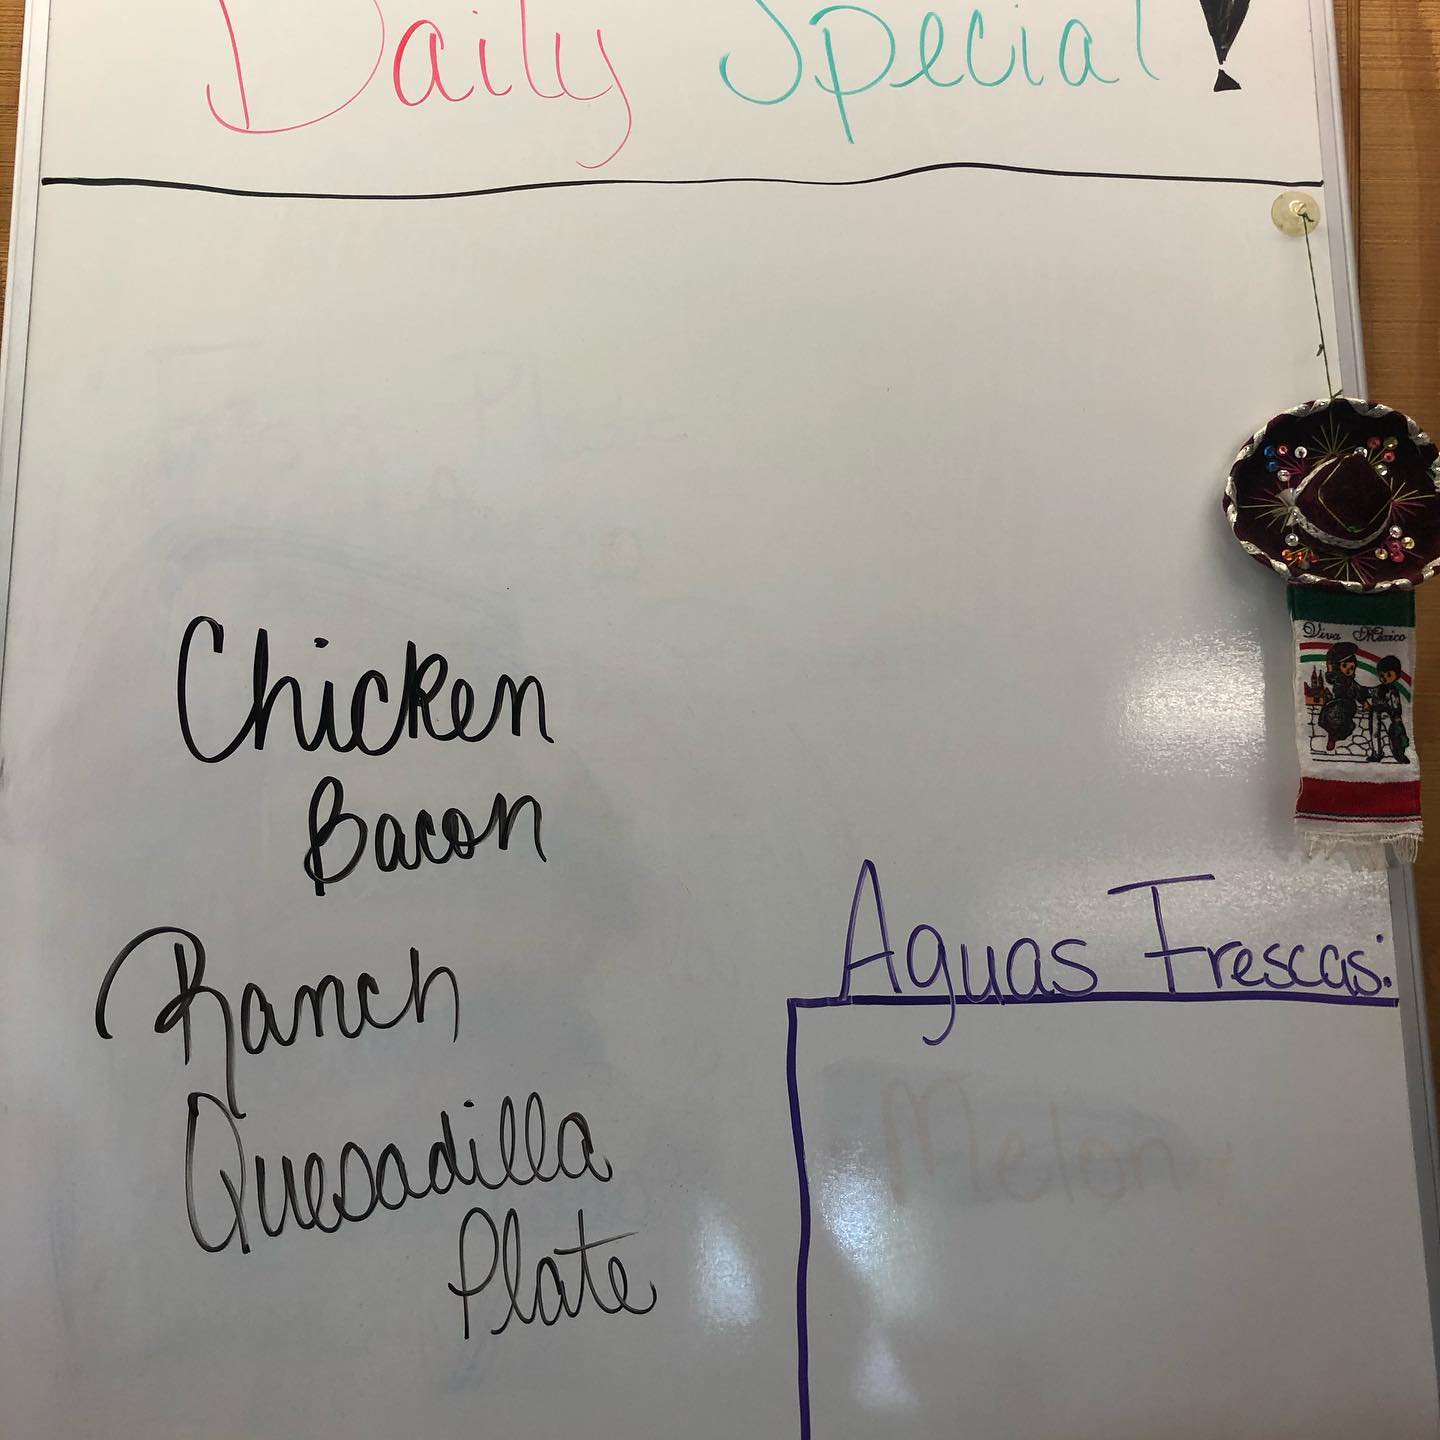 Daily Special!
Viva Mexico
Chicken
Bacon
Ranch
Quesadilla
Plate
Aguas Frescas:
Melon